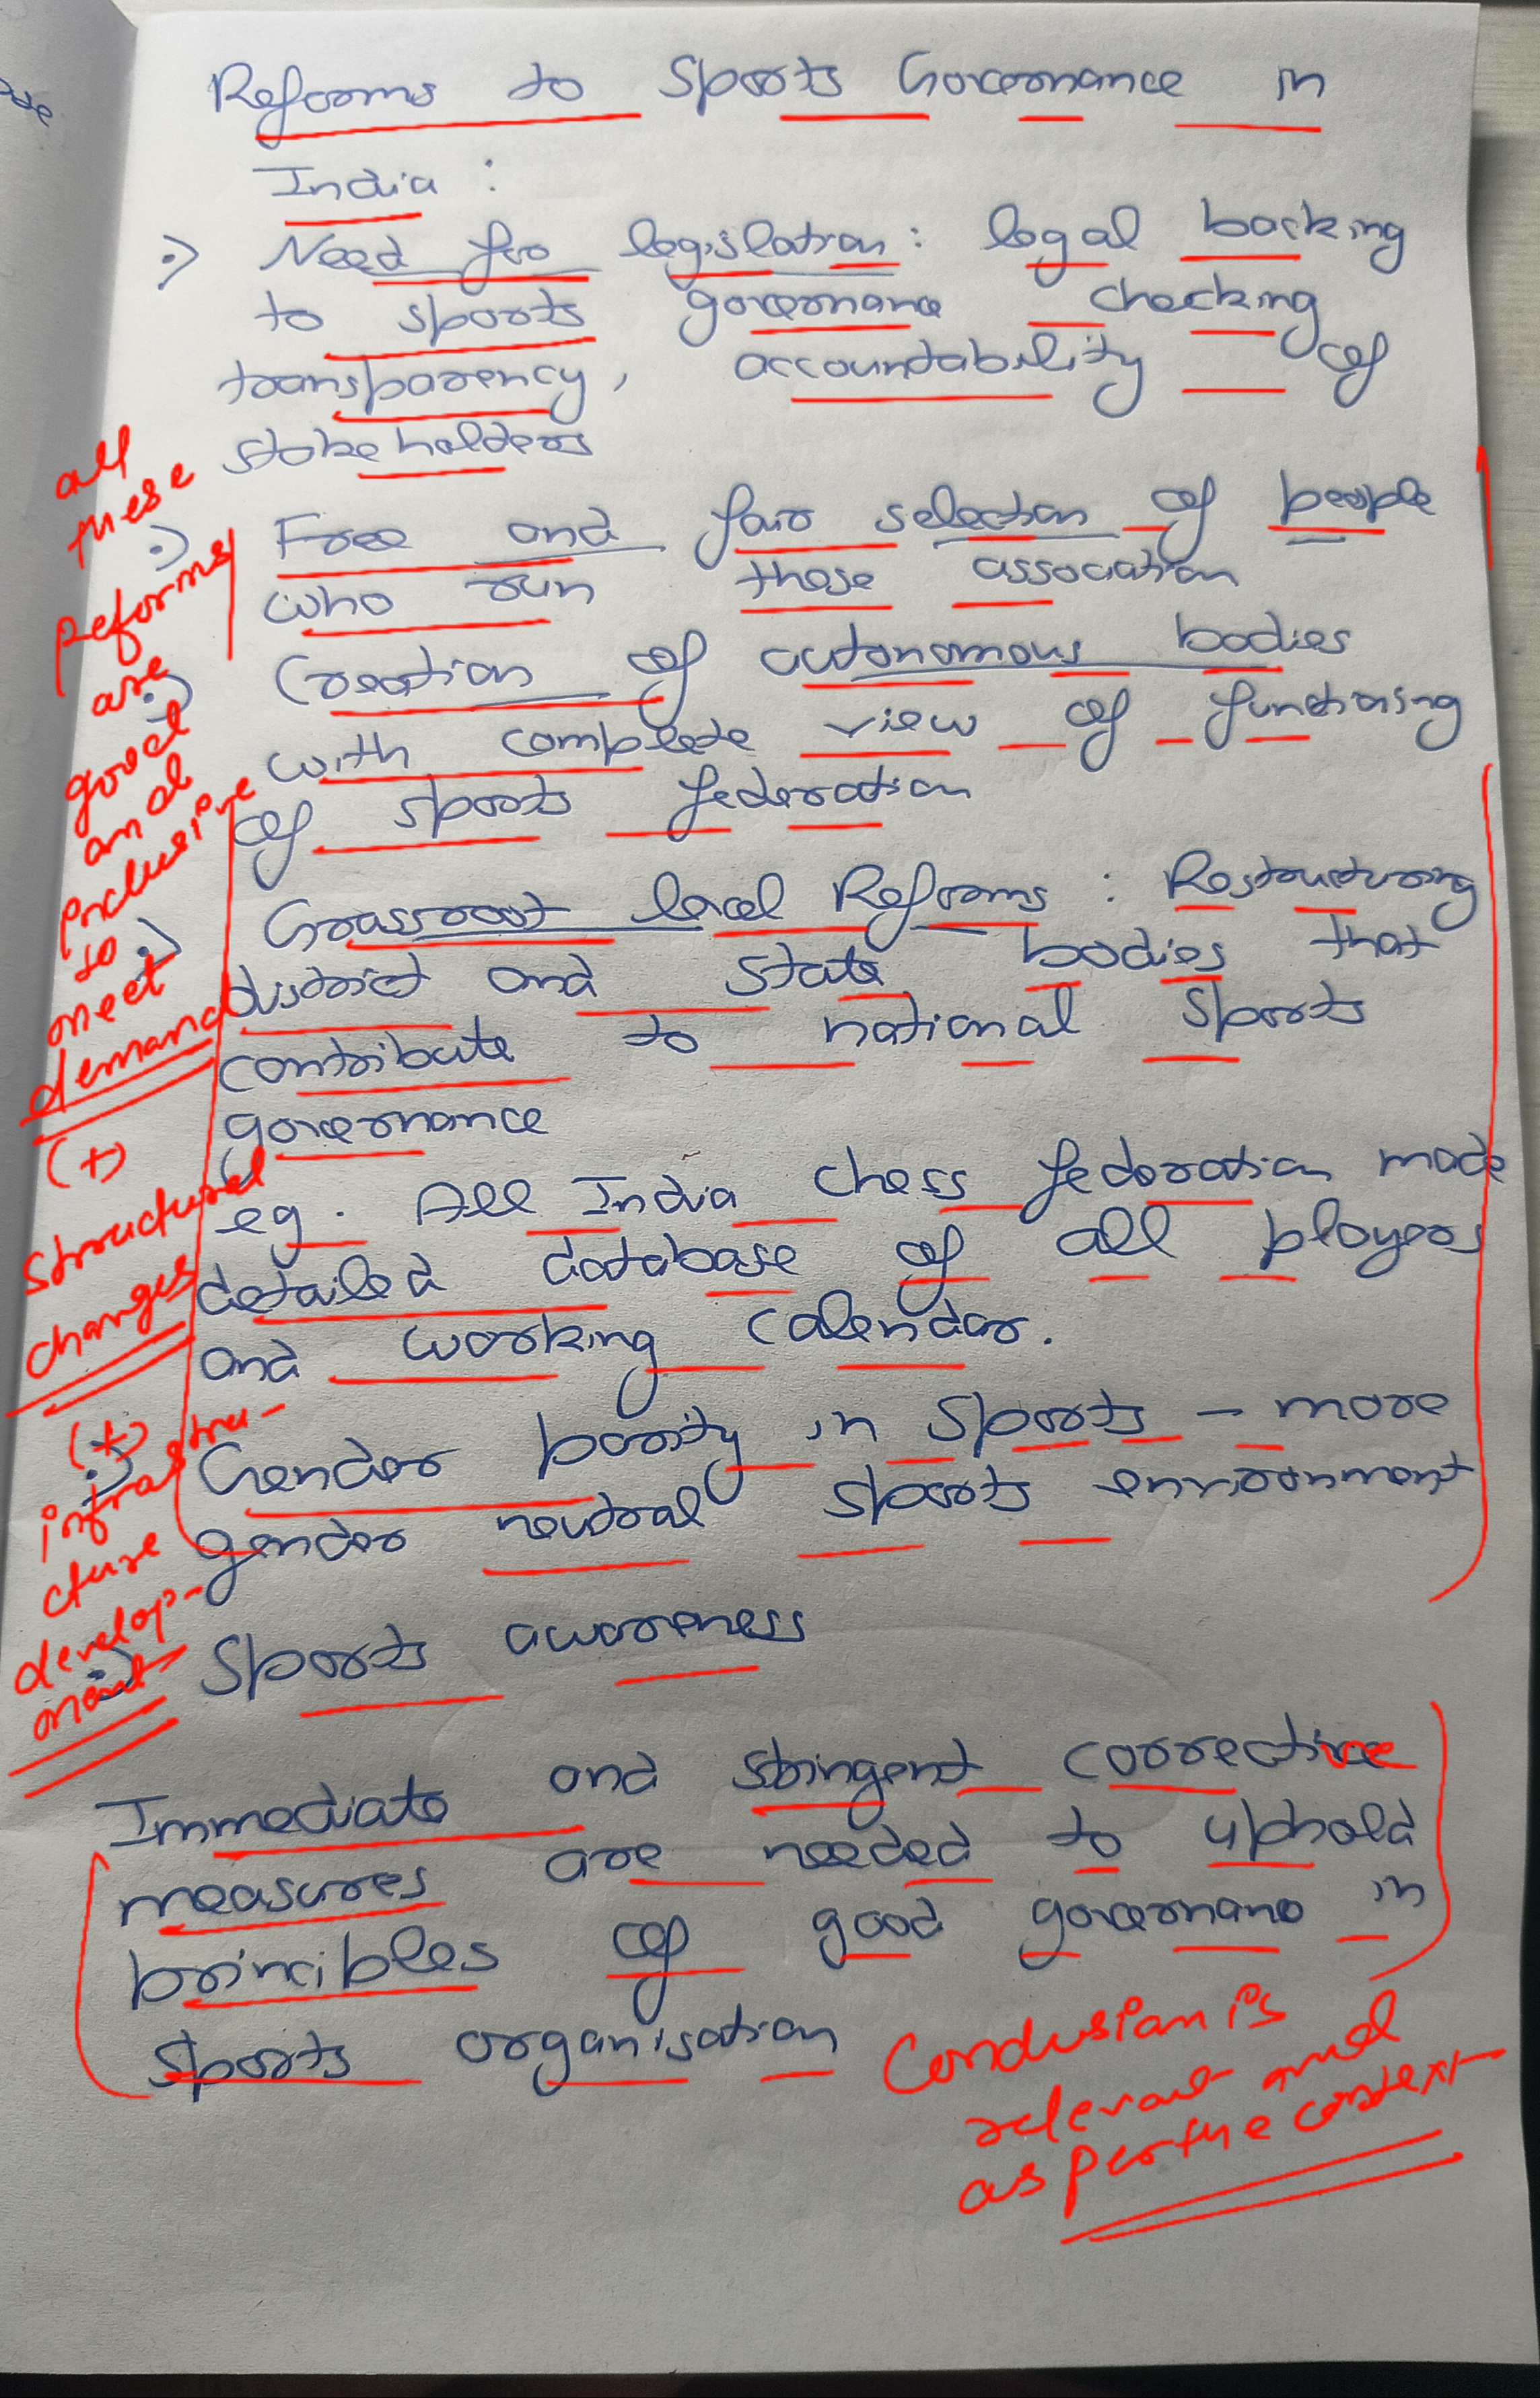 Reforms to Sports Governance in
India :
Need for legislation: legal backing
to sports governance checking
transparency, accountability of
stakeholders
Free and fair selection of people
who run these association
Creation of autonomous bodies
with complete view of functioning
of sports federation
Grassroot level Reforms : Restructuring
district and state bodies that
contribute to national sports
governance
eg. All India chess federation made
detailed database of all players
and working calendar.
Gender parity in sports - more
gender neutral sports environment
Sports awareness
Immediate and stringent corrective
measures are needed to uphold
principles of good governance in
sports organisation
all
these
reforms
are
good
and
inclusive
to
meet
demand
(+)
structural
changes
(+)
infrastru-
cture
develop-
ment
Conclusion is
relevant and
as per the context